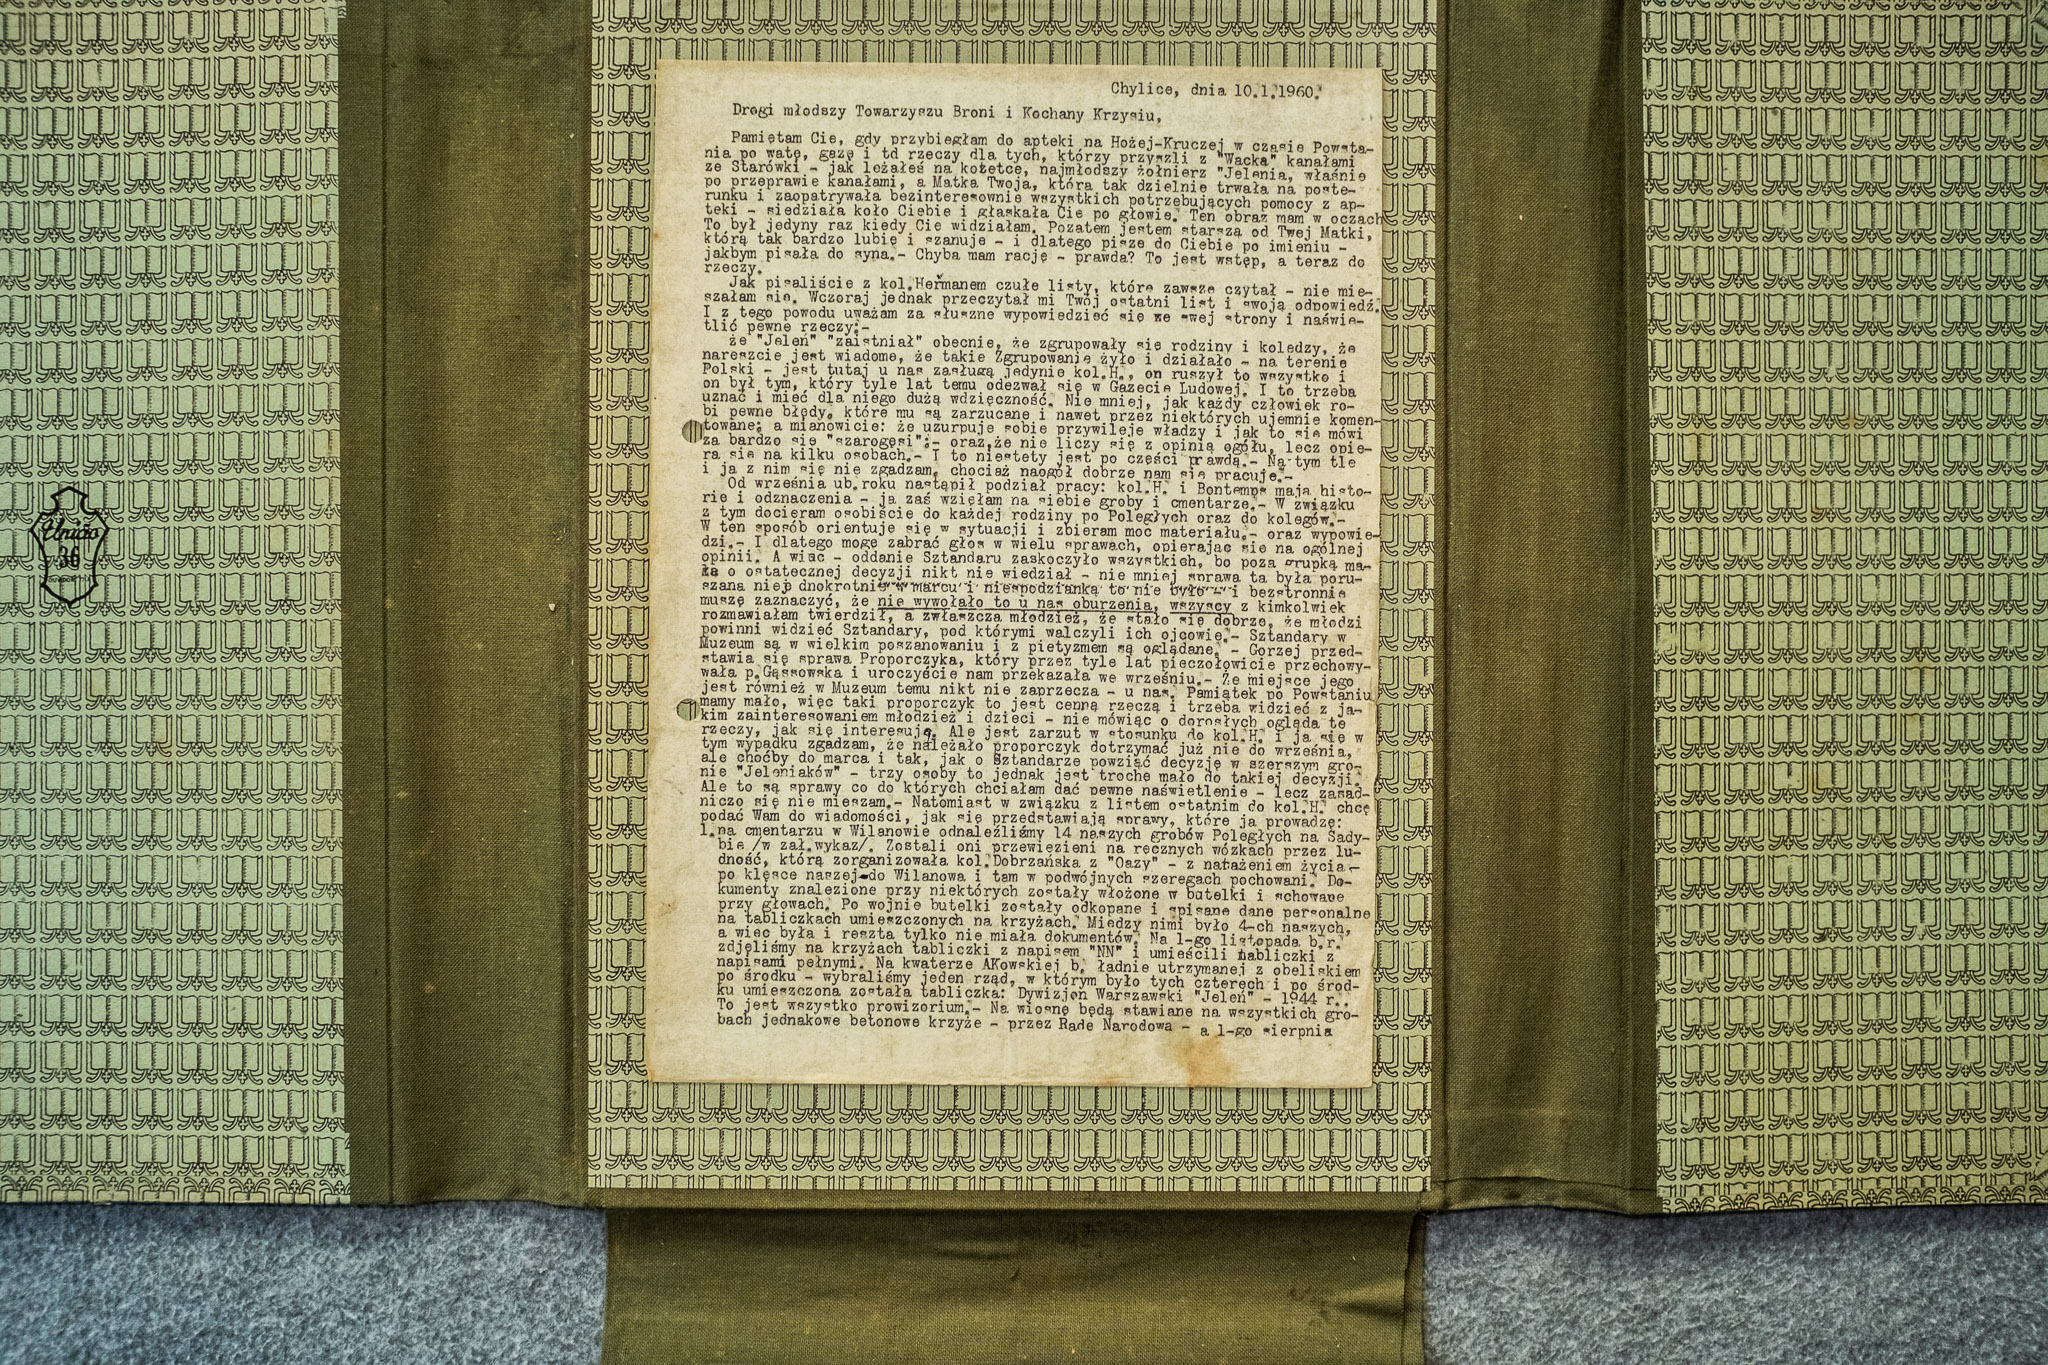 Chylice, dnia 10.1.1960.
Drogi młodszy Towarzyszu Broni i Kochany Krzysiu,
Pamiętam Cie, gdy przybiegłam do apteki na Hożej-Kruczej w czasie Powsta-
nia po watę, gazę i td rzeczy dla tych, którzy przyszli z "Wacka" kanałami
ze Starówki - jak leżałeś na kozetce, najmłodszy żołnierz "Jelenia, właśnie
po przeprawie kanałami, a Matka Twoja, która tak dzielnie trwała na poste-
runku i zaopatrywała bezinteresownie wszystkich potrzebujących pomocy z ap-
teki - siedziała koło Ciebie i głaskała Cie po głowie. Ten obraz mam w oczach
To był jedyny raz kiedy Cie widziałam. Pozatem jestem starszą od Twej Matki,
którą tak bardzo lubię i szanuje - i dlatego pisze do Ciebie po imieniu -
jakbym pisała do syna.- Chyba mam rację - prawda? To jest wstęp, a teraz do
rzeczy.
Jak pisaliście z kol.Heřmanem czułe listy, które zawsze czytał - nie mie-
szałam sie. Wczoraj jednak przeczytał mi Twój ostatni list i swoją odpowiedź.
I z tego powodu uważam za słuszne wypowiedzieć się ze swej strony i naświe-
tlić pewne rzeczy:-
że "Jeleń" "zaistniał" obecnie, że zgrupowały się rodziny i koledzy, że
nareszcie jest wiadome, że takie Zgrupowanie żyło i działało - na terenie
Polski - jest tutaj u nas zasługą jedynie kol.H., on ruszył to wszystko i
on był tym, który tyle lat temu odezwał się w Gazecie Ludowej. I to trzeba
uznać i mieć dla niego dużą wdzięczność. Nie mniej, jak każdy człowiek ro-
bi pewne błędy, które mu są zarzucane i nawet przez niektórych ujemnie komen-
towane; a mianowicie: że uzurpuje sobie przywileje władzy i jak to sie mówi
za bardzo sie "szarogęsi";- oraz,że nie liczy się z opinią ogółu, lecz opie-
ra sie na kilku osobach.- I to niestety jest po części prawdą.- Na tym tle
i ja z nim się nie zgadzam, chociaż naogół dobrze nam się pracuje.-
Od września ub.roku nastąpił podział pracy: kol.H. i Bontemps mają histo-
rie i odznaczenia - ja zaś wzięłam na siebie groby i cmentarze.- W związku
z tym docieram osobiście do każdej rodziny po Poległych oraz do kolegów.-
W ten sposób orientuje się w sytuacji i zbieram moc materiału.- oraz wypowie-
dzi.- I dlatego mogę zabrać głos w wielu sprawach, opierając sie na ogólnej
opinii. A wiac - oddanie Sztandaru zaskoczyło wszystkich, bo poza grupką ma-
łą o ostatecznej decyzji nikt nie wiedział - nie mniej sprawa ta była poru-
szana niejednokrotnie w marcu i niespodzianką to nie było - i bezstronnie
muszę zaznaczyć, że nie wywołało to u nas oburzenia, wszyscy z kimkolwiek
rozmawiałam twierdził, a zwłaszcza młodzież, że stało się dobrze, że młodzi
powinni widzieć Sztandary, pod którymi walczyli ich ojcowie.- Sztandary w
Muzeum są w wielkim poszanowaniu i z pietyzmem są oglądane. - Gorzej przed-
stawia się sprawa Proporczyka, który przez tyle lat pieczołowicie przechowy-
wała p.Gąssowska i uroczyście nam przekazała we wrześniu.- Że miejsce jego
jest również w Muzeum temu nikt nie zaprzecza - u nas. Pamiątek po Powstaniu
mamy mało, więc taki proporczyk to jest cenną rzeczą i trzeba widzieć z ja-
kim zainteresowaniem młodzież i dzieci - nie mówiąc o dorosłych ogląda te
rzeczy, jak się interesują. Ale jest zarzut w stosunku do kol.H. i ja się w
tym wypadku zgadzam, że należało proporczyk dotrzymać już nie do września,
ale choćby do marca i tak, jak o Sztandarze powziąć decyzję w szerszym gro-
nie "Jeleniaków" - trzy osoby to jednak jest troche mało do takiej decyzji.
Ale to są sprawy co do których chciałam dać pewne naświetlenie - lecz zasad-
niczo się nie mieszam.- Natomiast w związku z listem ostatnim do kol.H. chcę
podać Wam do wiadomości, jak się przedstawiają sprawy, które ja prowadzę:
1.na cmentarzu w Wilanowie odnaleźliśmy 14 naszych grobów Poległych na Sady-
bie /w zał.wykaz/. Zostali oni przewiezieni na recznych wózkach przez lu-
dność, którą zorganizowała kol.Dobrzańska z "Oazy" - z narażeniem życia -
po klęsce naszej-do Wilanowa i tam w podwójnych szeregach pochowani. Do-
kumenty znalezione przy niektórych zostały włożone w butelki i schowane
przy głowach. Po wojnie butelki zostały odkopane i spisane dane personalne
na tabliczkach umieszczonych na krzyżach. Miedzy nimi było 4-ch naszych,
a wiec była i reszta tylko nie miała dokumentów. Na 1-go listopada b.r.
zdjęliśmy na krzyżach tabliczki z napisem "NN" i umieścili tabliczki z
napisami pełnymi. Na kwaterze AKowskiej b. ładnie utrzymanej z obeliskiem
po środku - wybraliśmy jeden rząd, w którym było tych czterech i po środ-
ku umieszczona została tabliczka: Dywizjon Warszawski "Jeleń" - 1944 r..
To jest wszystko prowizorium.- Na wiosnę będą stawiane na wszystkich gro-
bach jednakowe betonowe krzyże - przez Rade Narodowa - a 1-go sierpnia
Unido
36